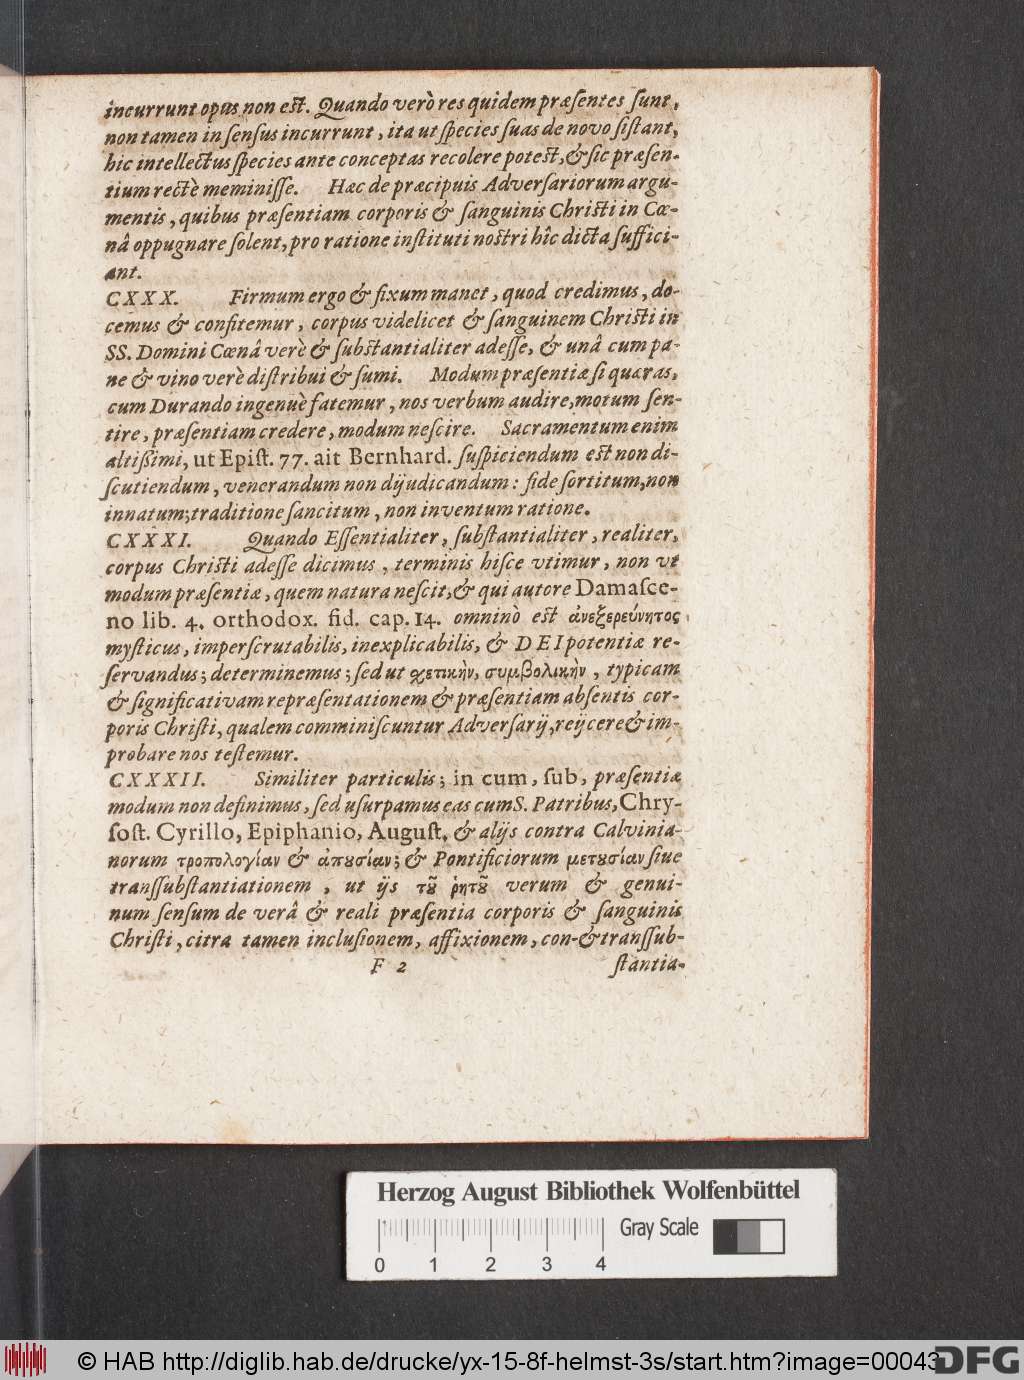 incurrunt opus non est. Quando verò res quidem præsentes sunt,
non tamen in sensus incurrunt, ita ut species suas de novo sistant,
hic intellectus species ante conceptas recolere potest, & sic præsen-
tium rectè meminisse. Hæc de præcipuis Adversariorum argu-
mentis, quibus præsentiam corporis & sanguinis Christi in Cœ-
nâ oppugnare solent, pro ratione instituti nostri hîc dicta suffici-
ant.
CXXX. Firmum ergo & fixum manet, quod credimus, do-
cemus & confitemur, corpus videlicet & sanguinem Christi in
SS. Domini Cœnâ verè & substantialiter adesse, & unâ cum pa-
ne & vino verè distribui & sumi. Modum præsentiæ si quæras,
cum Durando ingenuè fatemur, nos verbum audire, motum sen-
tire, præsentiam credere, modum nescire. Sacramentum enim
altißimi, ut Epist. 77. ait Bernhard. suspiciendum est non di-
scutiendum, venerandum non dijudicandum: fide sortitum, non
innatum; traditione sancitum, non inventum ratione.
CXXXI. Quando Essentialiter, substantialiter, realiter,
corpus Christi adesse dicimus, terminis hisce vtimur, non vt
modum præsentiæ, quem natura nescit, & qui autore Damasce-
no lib. 4. orthodox. fid. cap. 14. omninò est ἀνεξερεύνητος
mysticus, imperscrutabilis, inexplicabilis, & DEI potentiæ re-
servandus; determinemus; sed ut χετικὴν, συμβολικὴν, typicam
& significativam repræsentationem & præsentiam absentis cor-
poris Christi, qualem comminiscuntur Adversarij, reijcere & im-
probare nos testemur.
CXXXII. Similiter particulis; in cum, sub, præsentiæ
modum non definimus, sed usurpamus eas cum S. Patribus, Chry-
sost. Cyrillo, Epiphanio, August. & alijs contra Calvinia-
norum τροπολογίαν & ἀπουσίαν; & Pontificiorum μετουσίαν siue
transsubstantiationem, ut ijs τοῦ ῥητοῦ verum & genui-
num sensum de verâ & reali præsentia corporis & sanguinis
Christi, citra tamen inclusionem, affixionem, con-& transsub-
F 2 stantia-
Herzog August Bibliothek Wolfenbüttel
Gray Scale
0 1 2 3 4
© HAB http://diglib.hab.de/drucke/yx-15-8f-helmst-3s/start.htm?image=00043
DFG